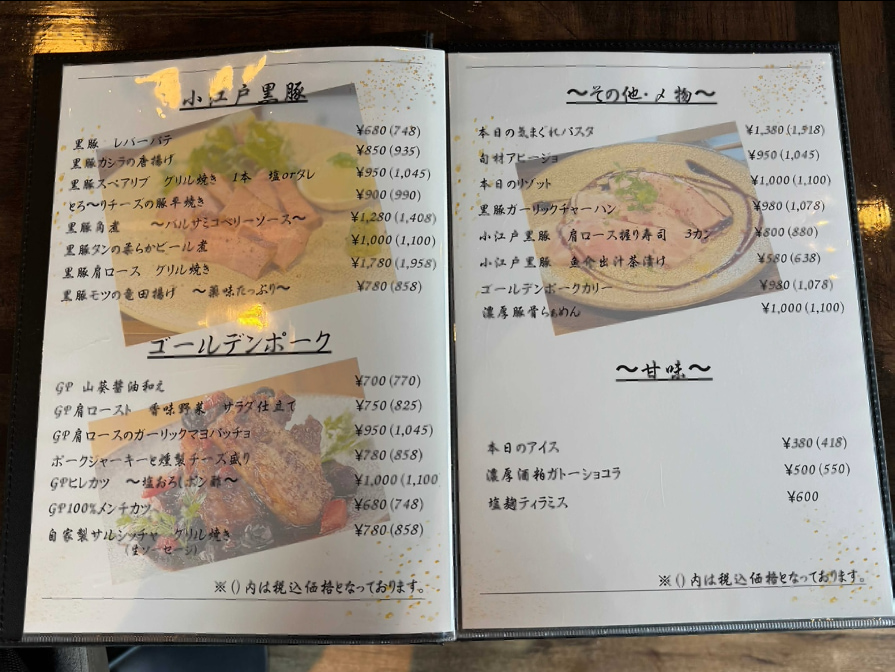 小江戸黒豚
黒豚 レバーパテ ¥680(748)
黒豚カシラの唐揚げ ¥850(935)
黒豚スペアリブ グリル焼き 1本 塩orタレ ¥950(1,045)
とろ〜りチーズの豚平焼き ¥900(990)
黒豚角煮 〜バルサミコベリーソース〜 ¥1,280(1,408)
黒豚タンの柔らかビール煮 ¥1,000(1,100)
黒豚肩ロース グリル焼き ¥1,780(1,958)
黒豚モツの竜田揚げ 〜薬味たっぷり〜 ¥780(858)
ゴールデンポーク
GP 山葵醤油和え ¥700(770)
GP肩ロースト 香味野菜 サラダ仕立て ¥750(825)
GP肩ロースのガーリックマヨパッチョ ¥950(1,045)
ポークジャーキーと燻製チーズ盛り ¥780(858)
GPヒレカツ 〜塩おろしポン酢〜 ¥1,000(1,100
GP100%メンチカツ ¥680(748)
自家製サルシッチャ グリル焼き ¥780(858)
(生ソーセージ)
※()内は税込価格となっております。
〜その他・〆物〜
本日の気まぐれパスタ ¥1,380(1,518)
旬材アヒージョ ¥950(1,045)
本日のリゾット ¥1,000(1,100)
黒豚ガーリックチャーハン ¥980(1,078)
小江戸黒豚 肩ロース握り寿司 3カン ¥800(880)
小江戸黒豚 魚介出汁茶漬け ¥580(638)
ゴールデンポークカリー ¥980(1,078)
濃厚豚骨らぁめん ¥1,000(1,100)
〜甘味〜
本日のアイス ¥380(418)
濃厚酒粕ガトーショコラ ¥500(550)
塩麹ティラミス ¥600
※()内は税込価格となっております。